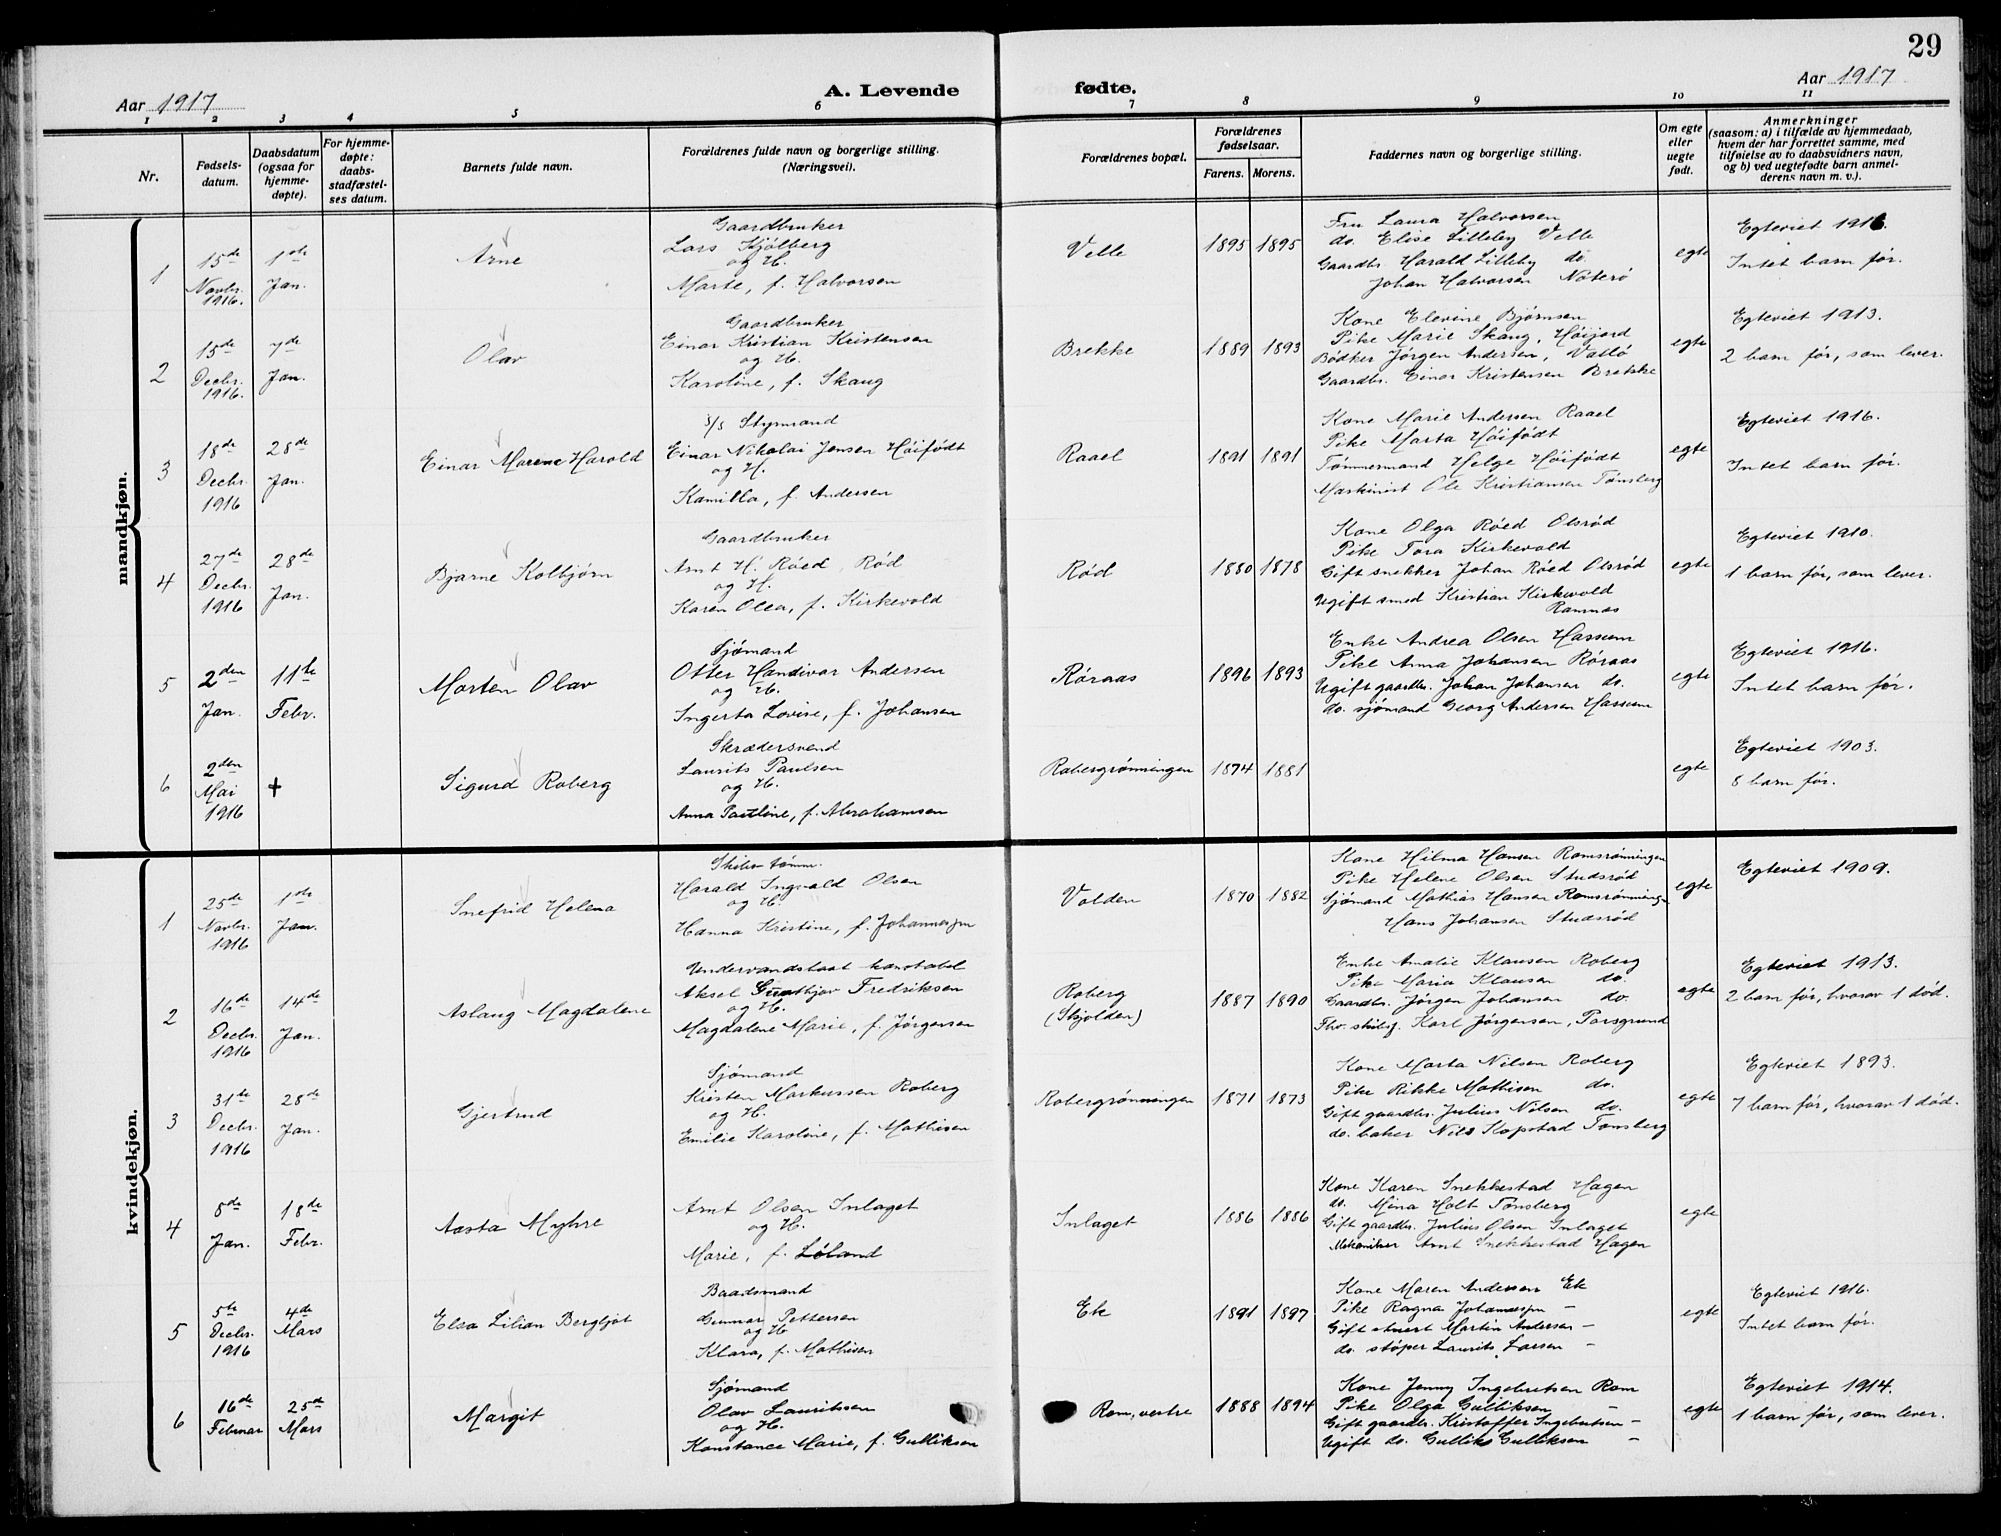 29
Aar 1917
A. Levende fødte.
Aar 1917
1 2 3 4 5 6 7 8 9 10 11
Nr.
Fødsels-
datum.
Daabsdatum
(ogsaa for
hjemme-
døpte).
For hjemme-
døpte:
daabs-
stadfæstel-
ses datum.
Barnets fulde navn.
Forældrenes fulde navn og borgerlige stilling.
(Næringsvei).
Forældrenes bopæl.
Forældrenes
fødselsaar.
Farens. Morens.
Faddernes navn og borgerlige stilling.
Om egte
eller
uegte
født.
Anmerkninger
(saasom: a) i tilfælde av hjemmedaab,
hvem der har forrettet samme, med
tilføielse av to daabsvidners navn,
og b) ved uegtefødte barn anmel-
derens navn m. v.).
mandkjøn.
1
15de
Novbr.
1916.
1ste
Jan.
Arne
Gaardbruker
Lars Kjølberg
og H.
Marte, f. Halvorsen
Velle
1895 1895
Fru Laura Halvorsen
do. Elise Lilleby Velle
Gaardbr. Harald Lilleby do.
Johan Halvorsen Nøterø
egte
Egteviet 1916.
Intet barn før.
2
15de
Decbr.
1916.
7de
Jan.
Olav
Gaardbruker
Einar Kristian Kristensen
og H.
Karoline, f. Skaug
Brekke
1889 1893
Kone Elevine Bjørnsen
Pike Marie Skaug, Høijord
Bødker Jørgen Andersen, Vallø
Gaardbr. Einar Kristensen Brekke
egte
Egteviet 1913.
2 barn før, som lever.
3
18de
Decbr.
1916
28de
Jan.
Einar Marene Harold
s/s Styrmand
Einar Nikolai Jensen Høifødt
og H.
Kamilla, f. Andersen
Raael
1891 1891
Kone Marie Andersen Raael
Pike Marta Høifødt
Tømmermand Helge Høifødt
Maskinist Ole Kristiansen Tønsberg
egte
Egteviet 1916.
Intet barn før.
4
27de
Decbr.
1916
28de
Jan.
Bjarne Kolbjørn
Gaardbruker
Arnt H. Røed, Rød
og H.
Karen Olea, f. Kirkevold
Rød
1880 1878
Kone Olga Røed Olsrød
Pike Tora Kirkevold
Gift snekker Johan Røed Olsrød
Ugift smed Kristian Kirkevold
Ramnæs
egte
Egteviet 1910.
1 barn før, som lever.
5
2den
Jan.
11te
Febr.
Morten Olav
Sjømand
Otter Handivar Andersen
og H.
Ingerta Lovise, f. Johansen
Røraas
1896 1893
Enke Andrea Olsen Hassum
Pike Anna Johansen Røraas
Ugift gaardbr. Johan Johansen do.
do. sjømand Georg Andersen Hassum
egte
Egteviet 1916.
Intet barn før.
6
2den
Mai
1916
+
Sigurd Roberg
Skrædersvend
Laurits Paulsen
og H.
Anna Pauline, f. Abrahamsen
Robergrønningen
1874 1881
egte
Egteviet 1903.
8 barn før.
kvindekjøn.
1
25de
Novbr.
1916
1ste
Jan.
Snefrid Helena
Skibstømm.
Harald Ingvald Olsen
og H.
Hanna Kristine, f. Johannesen
Volden
1870 1882
Kone Hilma Hansen Romsrønningen
Pike Helene Olsen Studsrød
Sjømand Mathias Hansen Romsrønningen
Hans Johansen Studsrød
egte
Egteviet 1909.
2
16de
Decbr.
1916
14de
Jan.
Aslaug Magdalene
Undervandsbaat konstabel
Aksel Fredriksen
og H.
Magdalene Marie, f. Jørgensen
Roberg
(Skjolden)
1887 1890
Enke Amalie Klausen Roberg
Pike Maria Klausen do.
Gaardbr. Jørgen Johansen do.
Karl Jørgensen, Porsgrund
egte
Egteviet 1913.
2 barn før, hvorav 1 død.
3
31te
Decbr.
1916
28de
Jan.
Gjertrud
Sjømand
Kristen Markussen Roberg
og H.
Emilie Karoline, f. Mathisen
Robergrønningen
1871 1873
Kone Marta Nilsen Roberg
Pike Rikke Mathisen do.
Gift gaardbr. Julius Nilsen do.
do. baker Nils Kopstad Tønsberg
egte
Egteviet 1893.
7 barn før, hvorav 1 død.
4
8de
Jan.
18de
Febr.
Aasta Myhre
Arnt Olsen Inlaget
og H.
Marie, f. Løland
Inlaget
1886 1886
Kone Karen Snekkestad Hagen
do. Mina Holt Tønsberg
Gift gaardbr. Julius Olsen Inlaget
Mekaniker Arnt Snekkestad Hagen
egte
5
5te
Decbr.
1916
4de
Mars
Elsa Lilian Bergljot
Baadsmand
Gunnar Pettersen
og H.
Klara, f. Mathisen
Ek
1891 1897
Kone Maren Andersen Ek
Pike Ragna Johannesen –
Gift stuert Martin Andersen –
do. støper Laurits Larsen –
egte
Egteviet 1916.
Intet barn før.
6
16de
Februar
25de
Mars
Margit
Sjømand
Olav Lauritssen
og H.
Konstance Marie, f. Gulliksen
Rom, vestre
1888 1894
Kone Jenny Ingebretsen Rom
Pike Olga Gulliksen –
Gift gaardbr. Kristoffer Ingebretsen –
Ugift do. Gulliks Gulliksen –
egte
Egteviet 1914.
1 barn før, som lever.